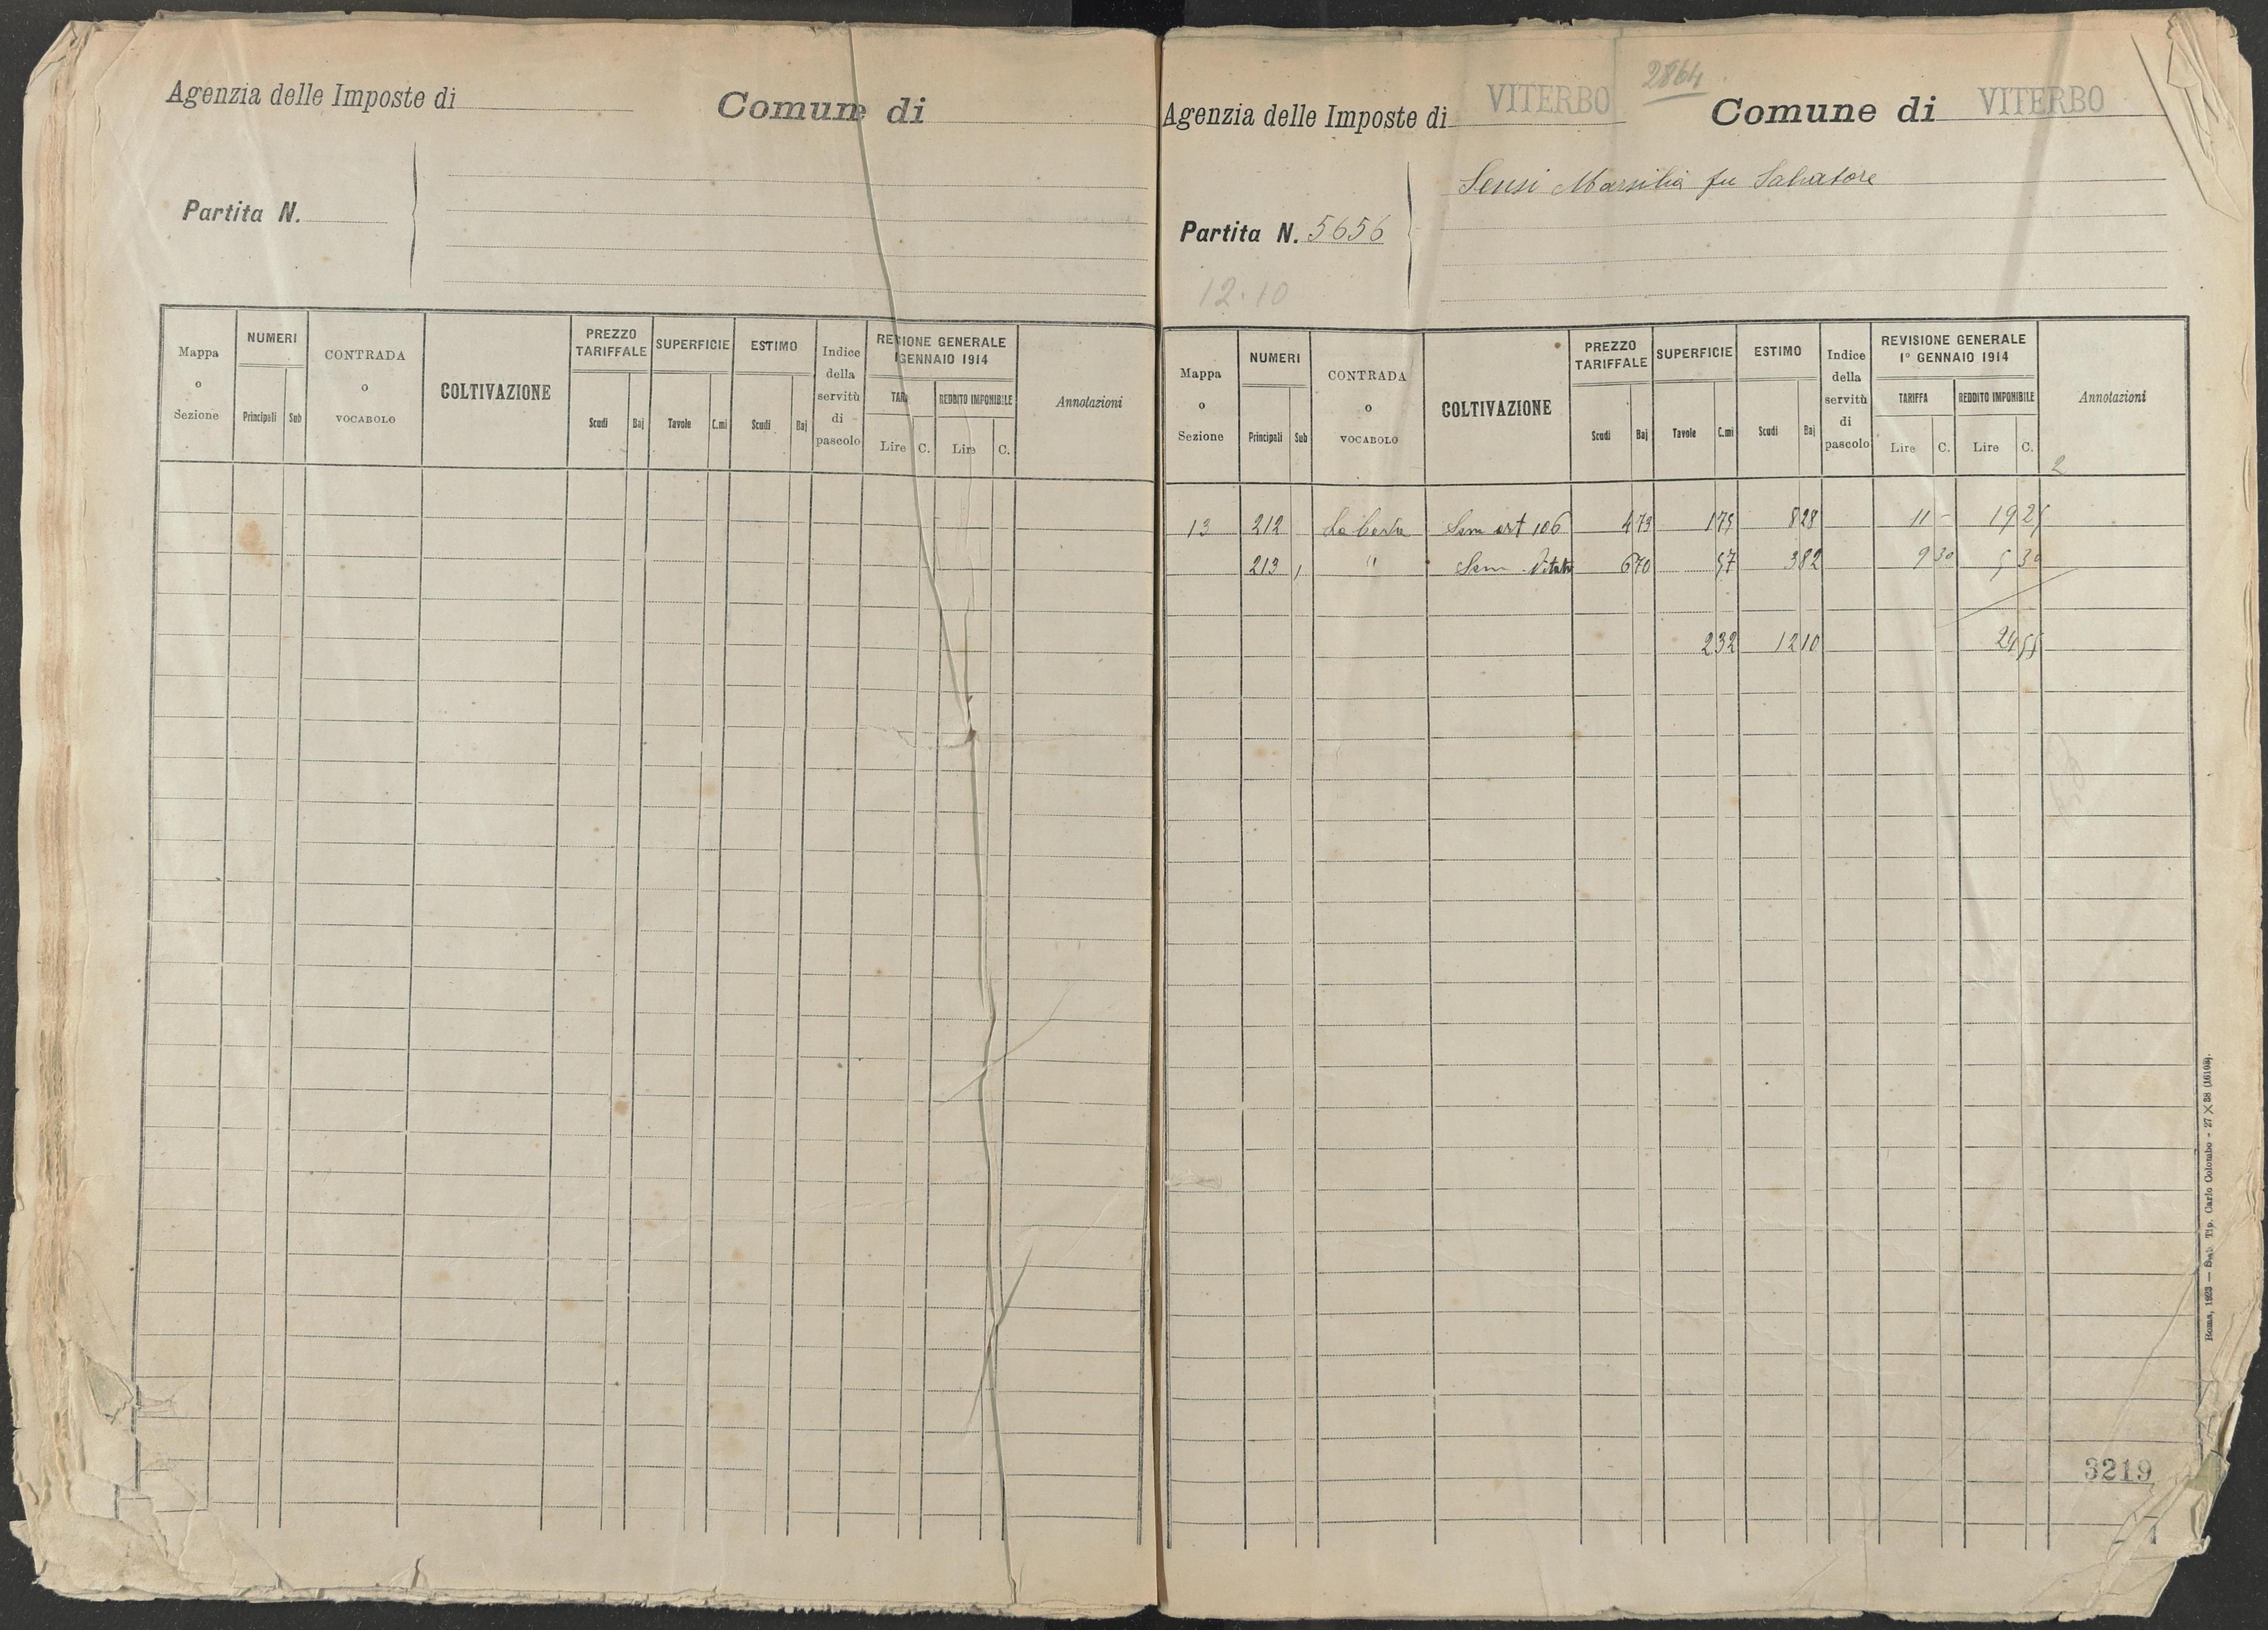 Agenzia delle Imposte di
Comune di
Partita N.
Mappa o Sezione
NUMERI
Principali Sub
CONTRADA o VOCABOLO
COLTIVAZIONE
PREZZO TARIFFALE
Scudi Baj
SUPERFICIE
Tavole C.mi
ESTIMO
Scudi Baj
Indice della servitù di pascolo
RE IONE GENERALE
GENNAIO 1914
TAR REDDITO IMPONIBILE
Lire C. Lire C.
Annotazioni
2864
Agenzia delle Imposte di VITERBO
Comune di VITERBO
Sensi Marsilia fu Salvatore
Partita N. 5656
12.10
Mappa o Sezione
NUMERI
Principali Sub
CONTRADA o VOCABOLO
COLTIVAZIONE
PREZZO TARIFFALE
Scudi Baj
SUPERFICIE
Tavole C.mi
ESTIMO
Scudi Baj
Indice della servitù di pascolo
REVISIONE GENERALE
1° GENNAIO 1914
TARIFFA REDDITO IMPONIBILE
Lire C. Lire C.
Annotazioni
2
13 212 Sem art 106 4 73 1 75 8 28 11 - 19 25
213 1 " Sem Vitato 6 70 57 3 82 9 30 5 30
2 32 12 10 24 55
3219
Roma, 1923 — Stab. Tip. Carlo Colombo - 27 X 38 (16108).